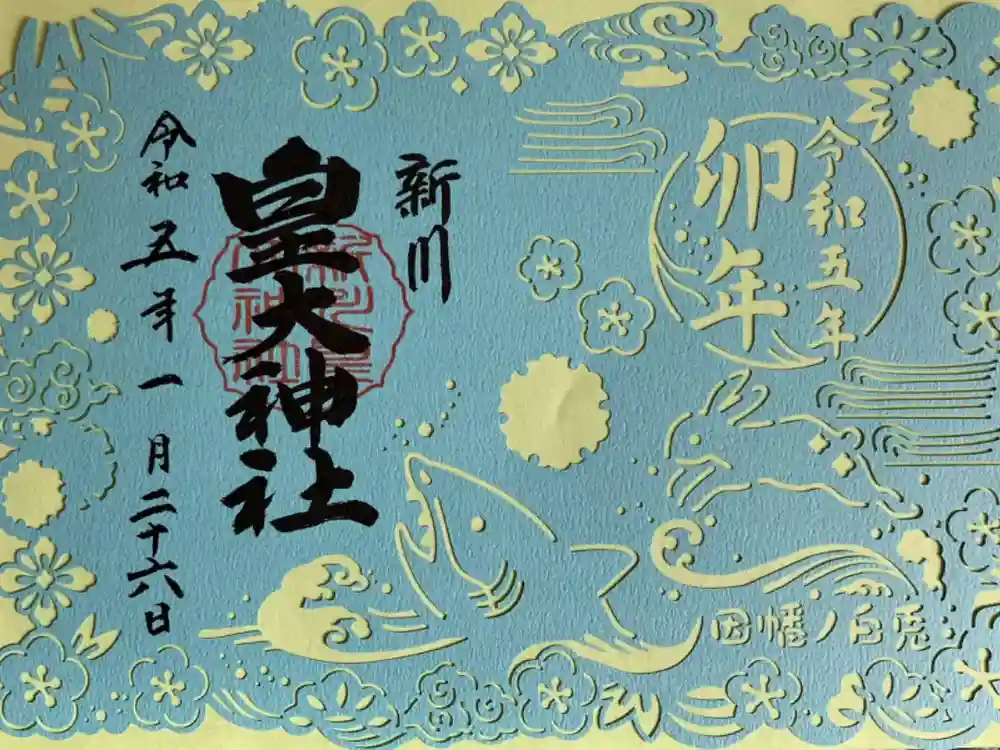 令和五年
卯年
新川
皇大神社
令和五年一月二十六日
因幡ノ白兎